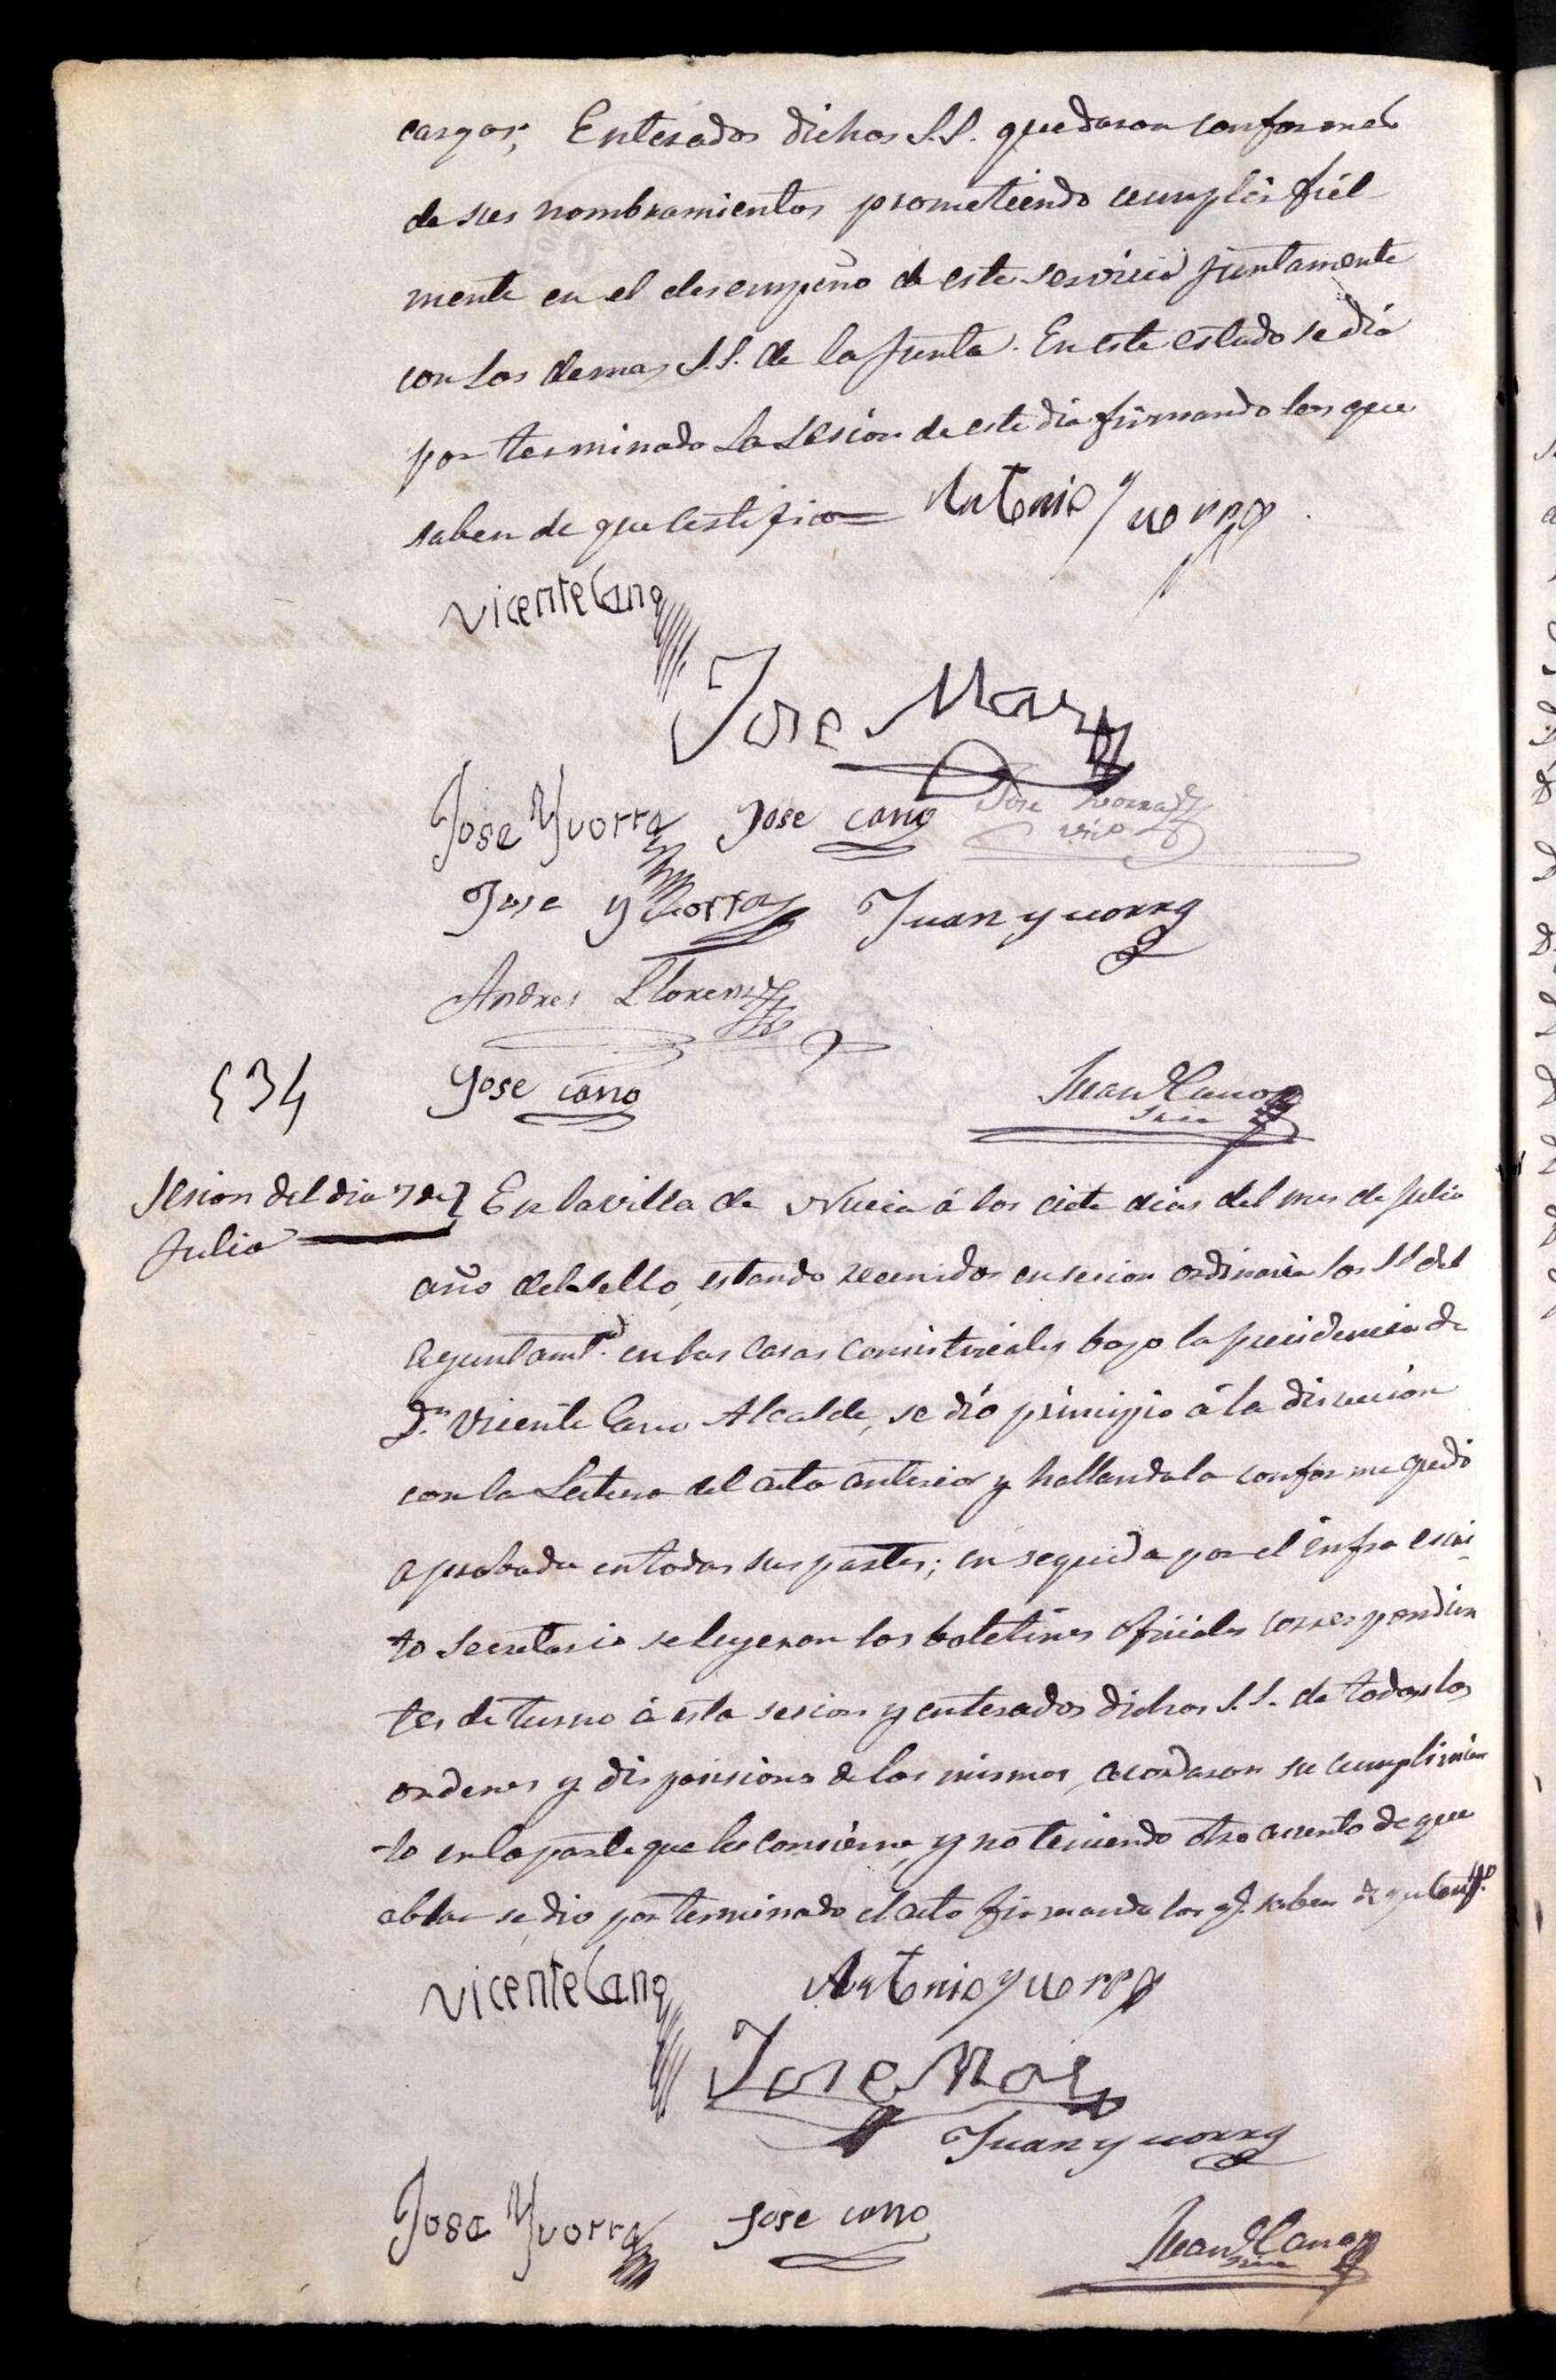 cargos; Enterados dichos S.S. quedaron conformes
de sus nombramientos prometiendo cumplir fiel
mente en el desempeño de este servicio juntamente
con los demas S.S. de la Junta. En este estado se dió
por terminado la sesion de este dia firmando los que
saben de que certifico= Antonio Yvorra
Vicente Cano
Jose Mars
Jose Yvorra Jose cano Jose Lloret
Jose yvorra Juan yvorra
Andres Llorens
534 Jose cano Juan Cano
Srio
Sesion del dia 7 de
Julio
En la villa de Nucia á los ciete dias del mes de Julio
año del sello, estando reunidos en sesion ordinaria los SS del
Ayuntamto. en las Casas Consistoriales bajo la presidencia de
Dn. Vicente Cano Alcalde, se dió principio á la discucion
con la Lectura del acta anterior y hallandola conforme quedó
aprobada en todas sus partes; en seguida por el infra escri
to Secretario se leyeron los boletines oficiales correspondien
tes de turno á esta sesion y enterados dichos S.S. de todas las
ordenes y disposisiones de los mismos, acordaron su cumplimien
to en la parte que les consierne, y no teniendo otro asento de que
ablar se dio por terminado el acto firmando los q. saben de que Certifo.
Vicente Cano Antonio yvorra
Jose Mars
Juan yvorra
Jose Yvorra Jose cano Juan Cano
Srio